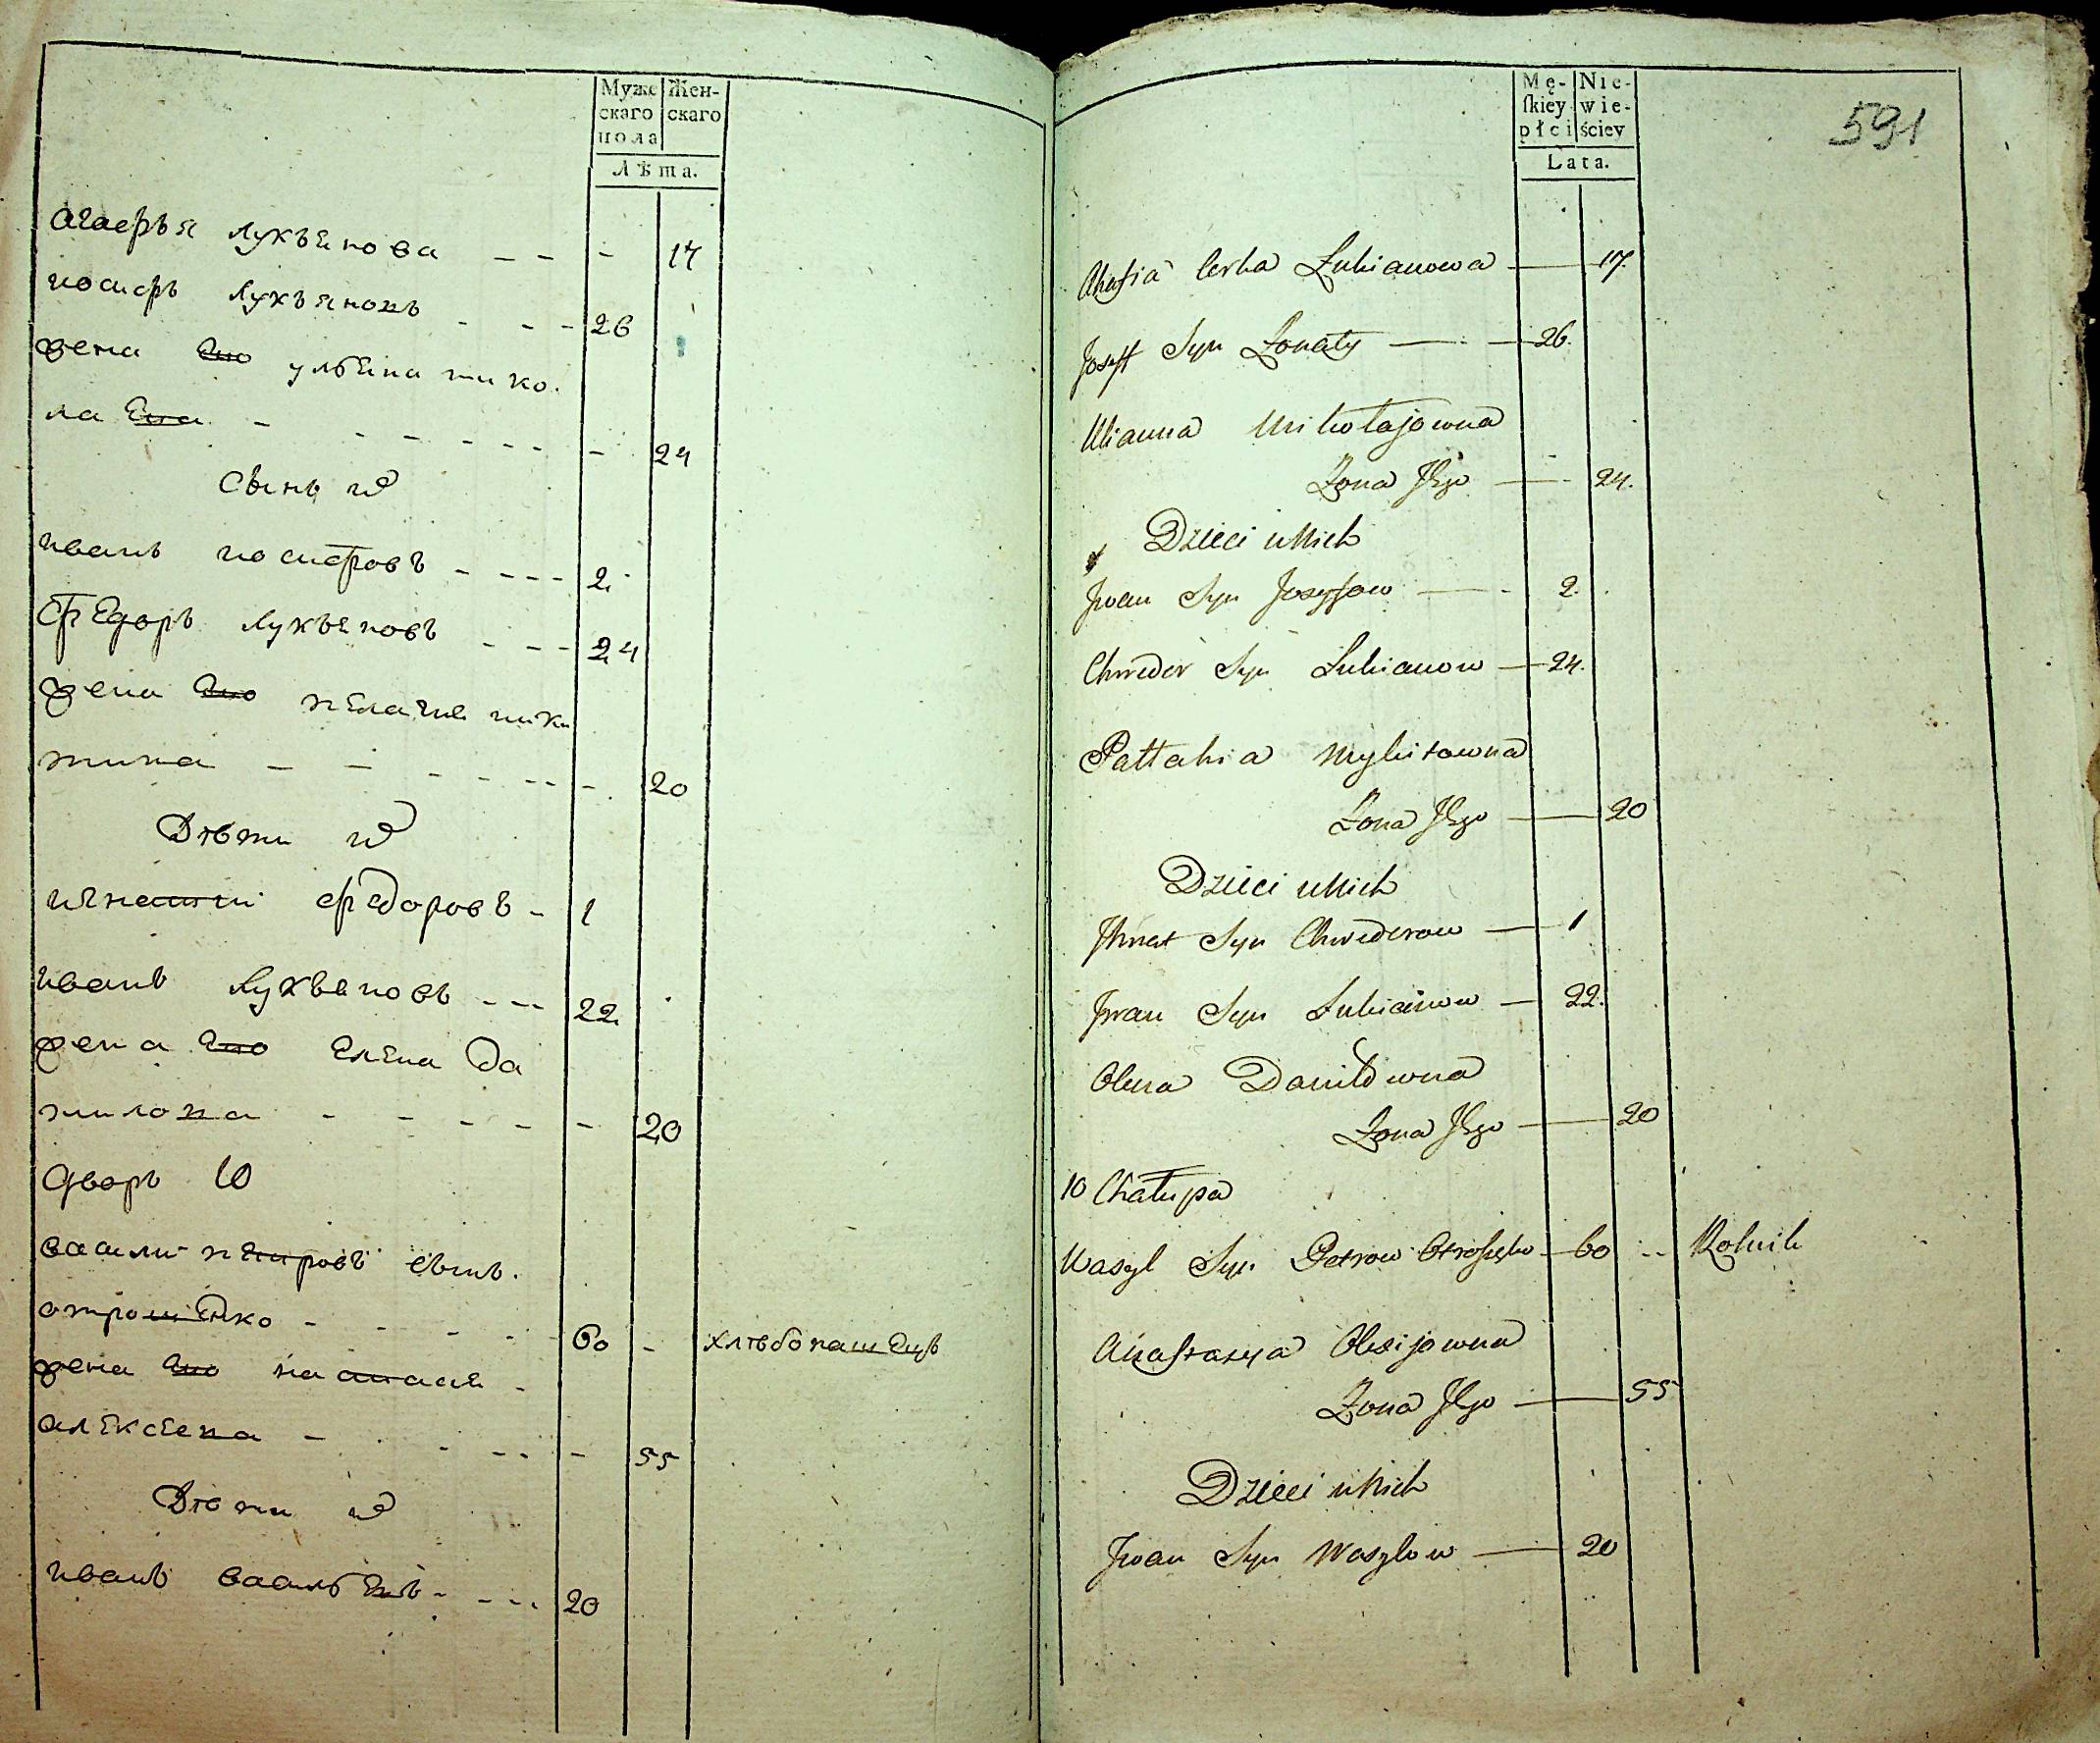 Муже
скаго
пола
Жен-
скаго
Лѣта.
агафья лукъянова - - - 17
иосифъ лукъяновъ - - - 26
жена Его ульяна нико.
ла Ева - - - - - - - 24
Сынъ и
иванъ иосифовъ - - - - 2
Федоръ лукъяновъ - - - 24
жена Его пелагия ники
тина - - - - - - - 20
Дѣти и
игнатий федоровъ - 1
иванъ лукъяновъ - - - 22
жена Его Елена Да
нилова - - - - - - 20
дворъ 10
василий петровъ сынъ.
отрошенко - - - - - 60 - хлѣбопашецъ
жена Его настася -
алексеева - - - - - - 55
Дѣти и
иванъ васильевъ - - - - 20
Mę-
skiey
płci
Nie-
wie-
ściey
Lata.
591
Ahafia Corka Lukianowa 17.
Joseff Syn 26.
Ulianna Mikołajowna
Zona Jego 24.
Dzieci u Nich
Jwan Syn Josyfow 2.
Chweder Syn Lukianow 24.
Pattahia Mykitowna
Zona Jego 20
Dzieci u Nich
Jhnat Syn Chwederow 1
Jwan Syn Lukianow 22.
Olena Daniłowna
Zona Jego 20
10 Chałupa
Wasyl Syn Petrow Otroszenko 60 - - Rolnik
Anastazya Olexijowna
Zona Jego 55
Dzieci u Nich
Jwan Syn Wasylow 20